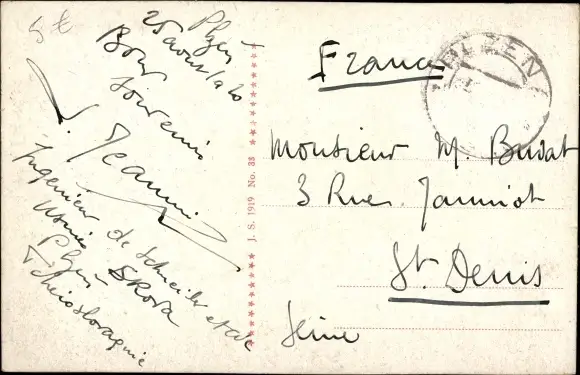 8 €
Plzeň
25 aout 1920
Bons
souvenirs
J. Jeannin
Ingenieur de Schneider et Cie
Usines SKODA
Plzeň
Tchécoslovaquie
J. S. 1919 No. 38
PLZEŇ
France
Monsieur M. Budat
3 Rue Jannot
St. Denis
Seine